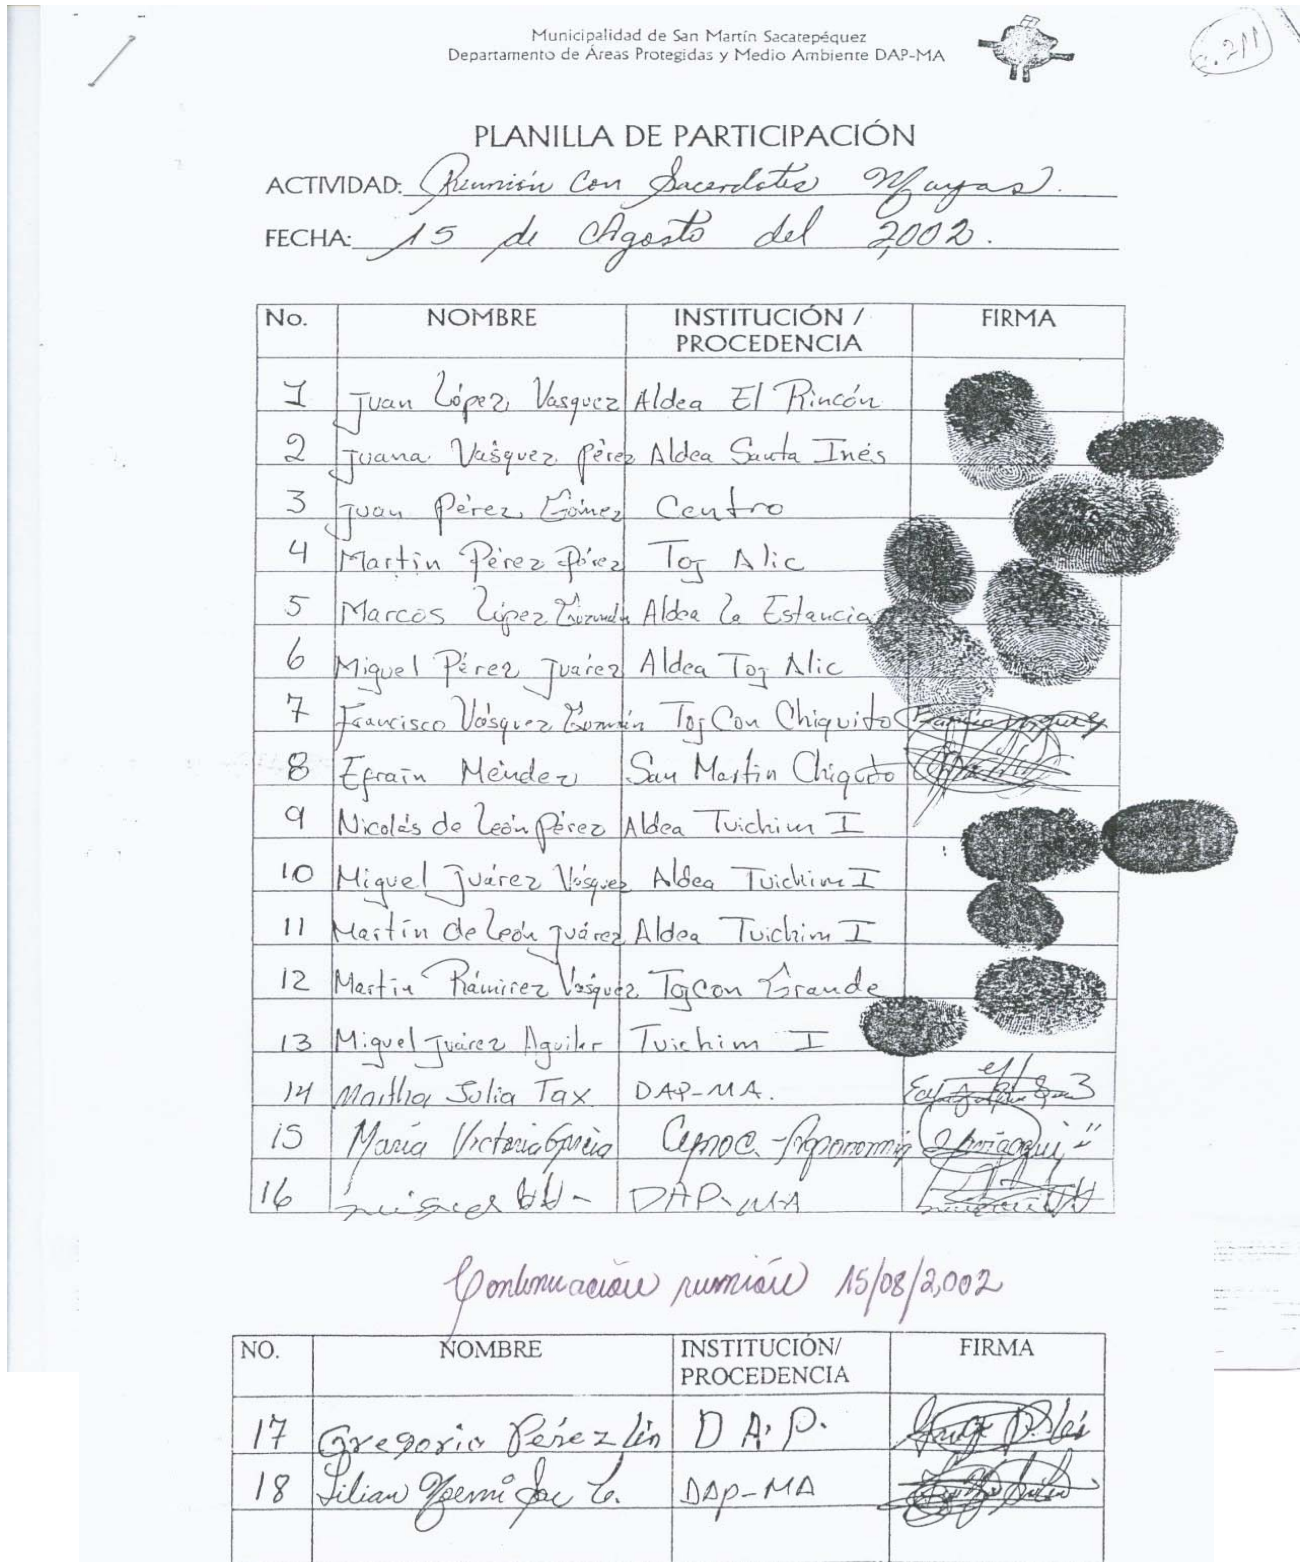 Municipalidad de San Martín Sacatepéquez
Departamento de Áreas Protegidas y Medio Ambiente DAP-MA
211
PLANILLA DE PARTICIPACIÓN
ACTIVIDAD: Reunión Con Sacerdotes Mayas.
FECHA: 15 de Agosto del 2,002.
No. NOMBRE INSTITUCIÓN / PROCEDENCIA FIRMA
1 Juan López Vasquez Aldea El Rincón
2 Juana Vásquez Pérez Aldea Santa Inés
3 Juan Pérez Gómez Centro
4 Martín Pérez Pérez Toj Alic
5 Marcos López Aldea La Estancia
6 Miguel Pérez Juárez Aldea Toj Alic
7 Francisco Vásquez Guzmán Toj Con Chiquito
8 Efraín Méndez San Martin Chiquito
9 Nicolás de León Pérez Aldea Tuichim I
10 Miguel Juárez Vásquez Aldea Tuichim I
11 Martín de León Juárez Aldea Tuichim I
12 Martin Rámirez Vásquez Toj Con Grande
13 Miguel Juárez Aguilar Tuichim I
14 Martha Julia Tax DAP-MA.
15 María Victoria García
16 DAP-MA
Continuación reunión 15/08/2,002
NO. NOMBRE INSTITUCIÓN/ PROCEDENCIA FIRMA
17 Gregorio Pérez D A. P.
18 Lilian DAP-MA